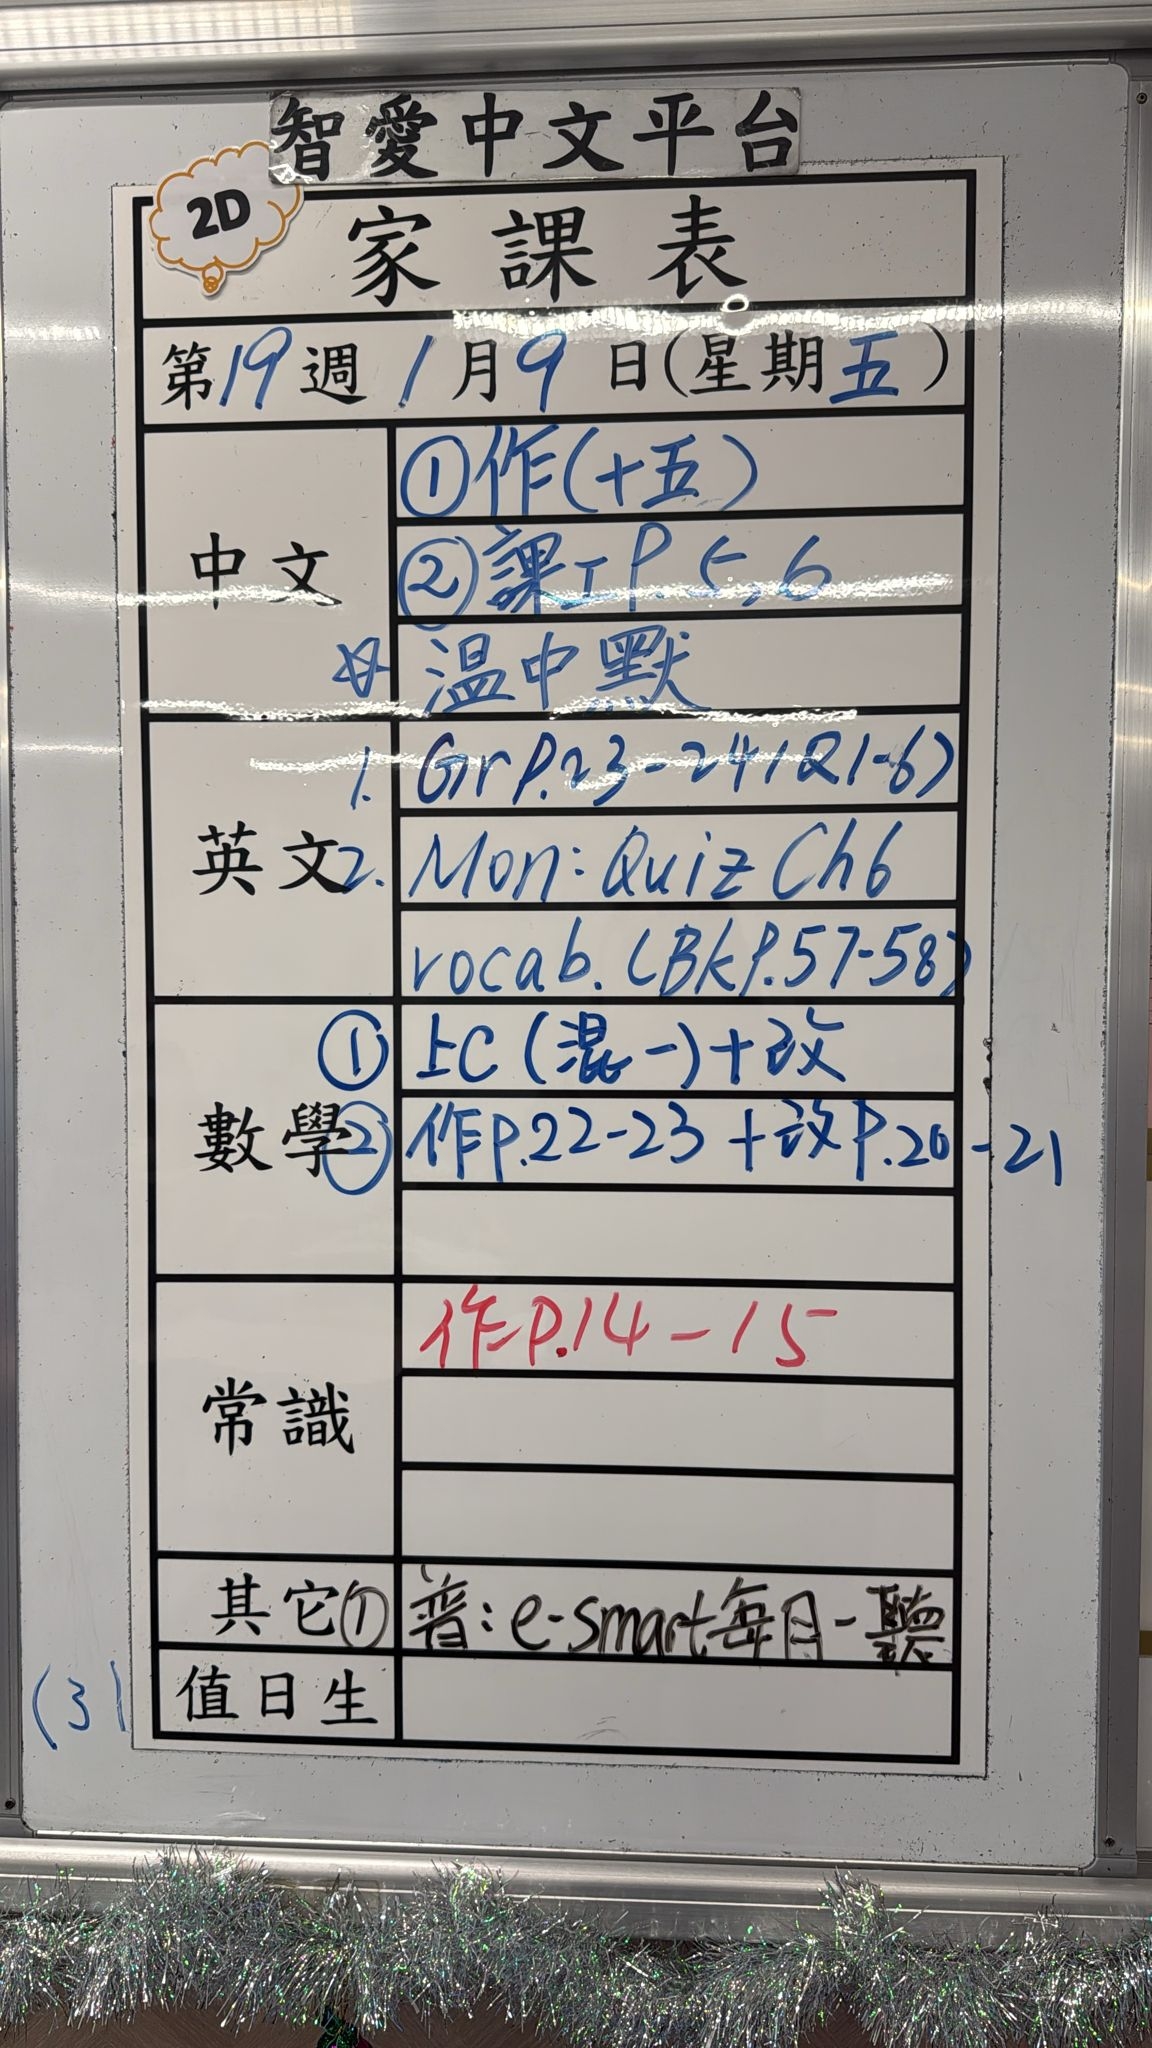 智愛中文平台
2D
家課表
第19週 1月9日(星期五)
中文
①作(十五)
②課工P.5,6
☆溫中默
英文
1. Gr P.23-24(Q1-6)
2. Mon: Quiz Ch6
vocab. (Bk P.57-58)
數學
① 上C(混一)+改
② 作P.22-23+改P.20-21
常識
作P.14-15
其它
① 普: e-smart每月一聽
值日生
(3)